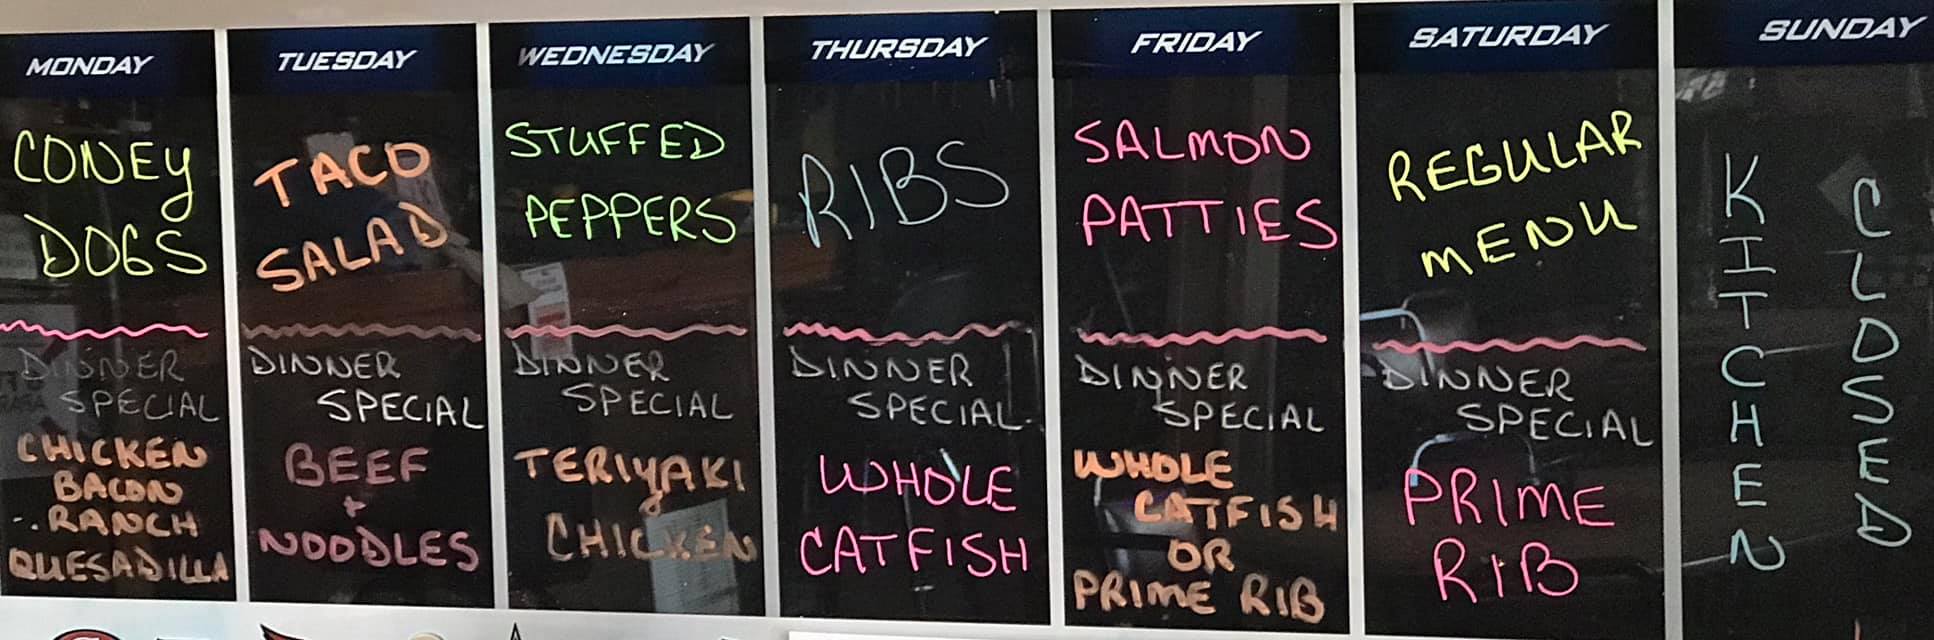 MONDAY
CONEY
DOGS
DINNER
SPECIAL
CHICKEN
BACON
RANCH
QUESADILLA
TUESDAY
TACO
SALAD
DINNER
SPECIAL
BEEF
+
NOODLES
WEDNESDAY
STUFFED
PEPPERS
DINNER
SPECIAL
TERIYAKI
CHICKEN
THURSDAY
RIBS
DINNER
SPECIAL
WHOLE
CATFISH
FRIDAY
SALMON
PATTIES
DINNER
SPECIAL
WHOLE
CATFISH
OR
PRIME RIB
SATURDAY
REGULAR
MENU
DINNER
SPECIAL
PRIME
RIB
SUNDAY
KITCHEN
CLOSED